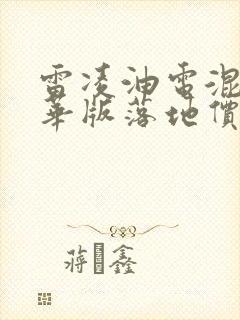 雷凌油电混
華版落地價
蒋鑫